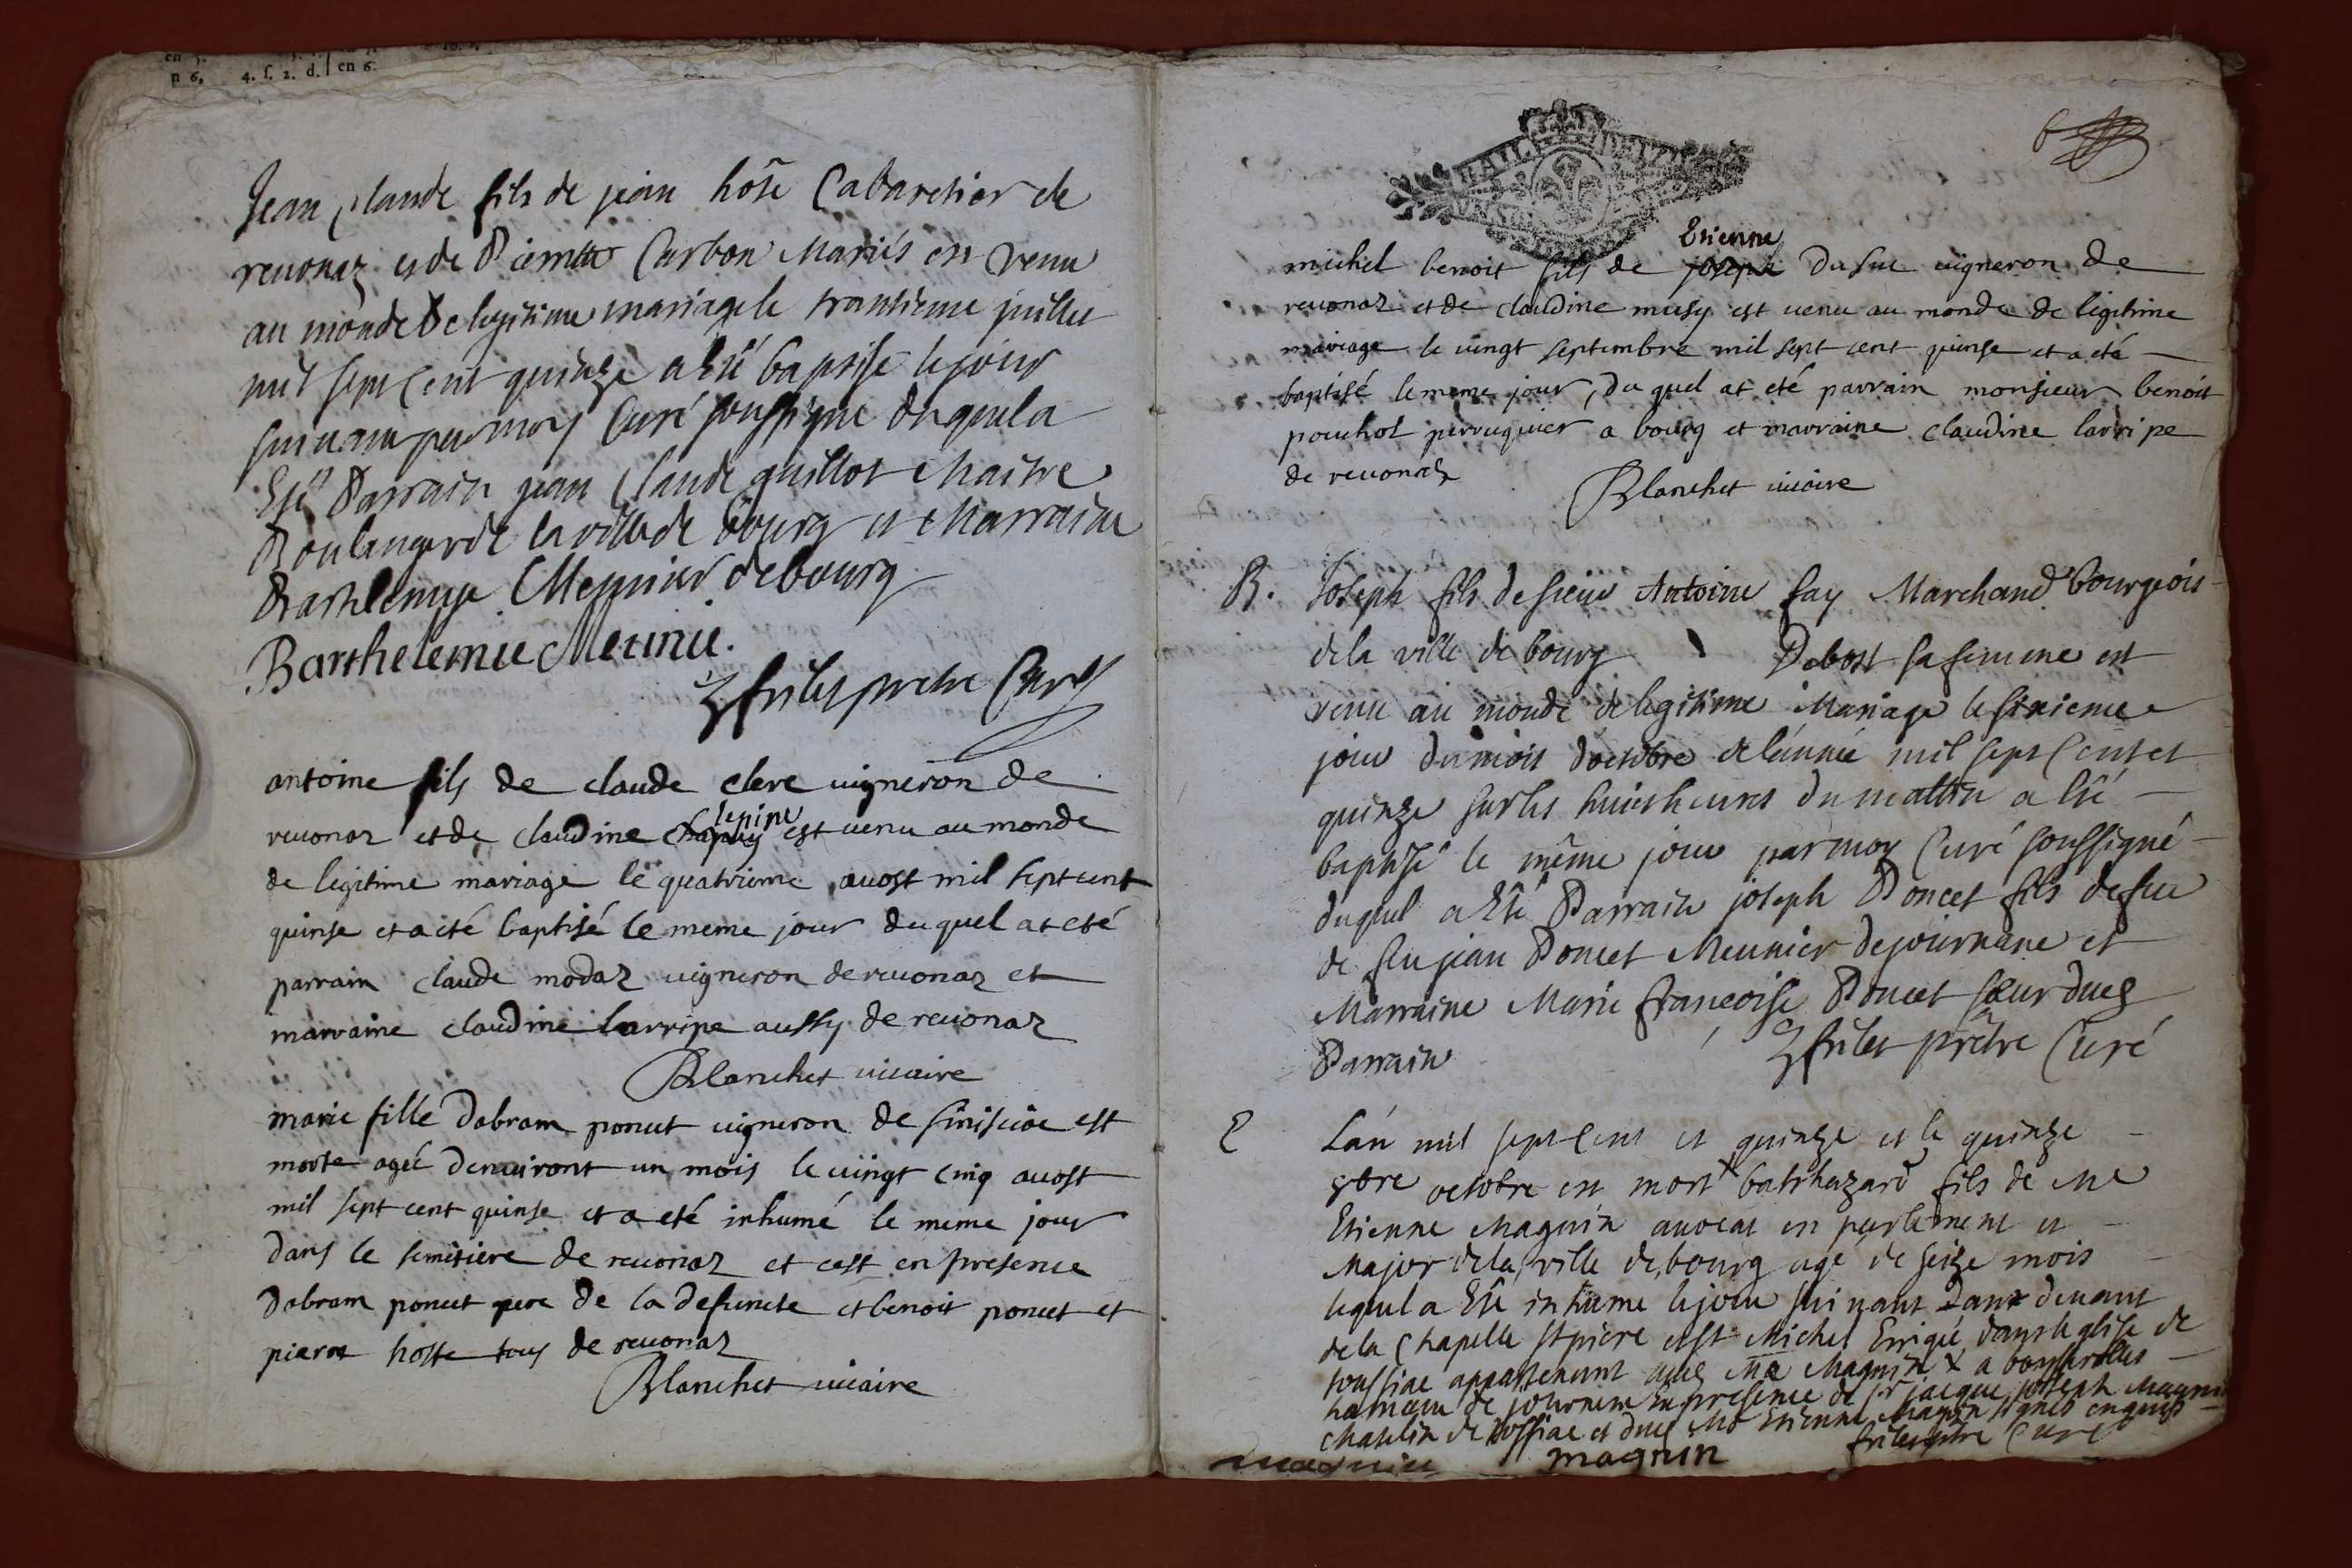 n 6, 4. s. 2. d. en 6.
Jean claude fils de jean hôte Cabaretier de
reuonaz et de Pierrette Carbon Mariés est venu
au monde de legitime mariage le trantieme juillet
mil sept Cent quinze a Esté baptisé le jour
suiuant par moy Curé soussigne duquel a
Esté Parrain jean Claude guillot Maitre
Boulanger de la ville de bourg et Marraine
Barthelemye Meunier de bourg
Barthelemie Meunie.
frilet pretre Curé
antoine fils de claude clerc uigneron de
reuonaz et de claudine lepine est uenu au monde
de legitime mariage le quatrieme auost mil sept cent
quinse et a eté baptisé le meme jour du quel at eté
parrain claude modaz uigneron de reuonaz et
marraine claudine larripe aussy de reuonaz
Blanchet uicaire
marie fille dabram poncet uigneron de est
morte ageé denuiront un mois le uingt cinq auost
mil sept cent quinse et a eté inhumé le meme jour
dans le semitiere de reuonaz et cest en presence
dabram poncet pere de la defuncte et benoit poncet et
pierre hoste tous de reuonaz
Blanchet uicaire
Etienne
michel benoit fils de joseph du suc uigneron de
reuonaz et de claudine musy est uenu au monde de legitime
mariage le uingt septembre mil sept cent quinse et a eté
baptisé le meme jour, du quel at eté parrain monsieur benoit
pouchot perruquier a bourg et marraine claudine larripe
de reuonaz
Blanchet uicaire
B. Joseph fils de sieur Antoine fay Marchand bourgeois
de la ville de bourg Debost sa femme est
venu au monde de legitime Mariage le sixieme
jour du mois doctobre de lannée mil sept Cent et
quinze sur les huict heures du mattin a Esté
baptisé le même jour par moy Curé soussigné
duquel a Esté Parrain joseph Poncet fils de feu
de feu jean Poncet Meunier de journane et
Marraine Marie francoise Poncet soeur dud
Parrain frilet prêtre Curé
E Lan mil sept Cent et quinze et le quinze
octobre est mort balthazard fils de Me
Etienne Magnin auocat en parlement et
Major de la ville de bourg agé de seize mois
lequel a Esté inhumé le jour suiuant deuant
de la Chapelle st pierre et st Michel Erigée dans leglise de
tossiac appartenant aud Me Magnin a
hameau de journane En presence de sr jacque joseph Magnin
Chatelin de tossiac et dud Me Etienne Magnin
magnin magnin frilet pretre Curé